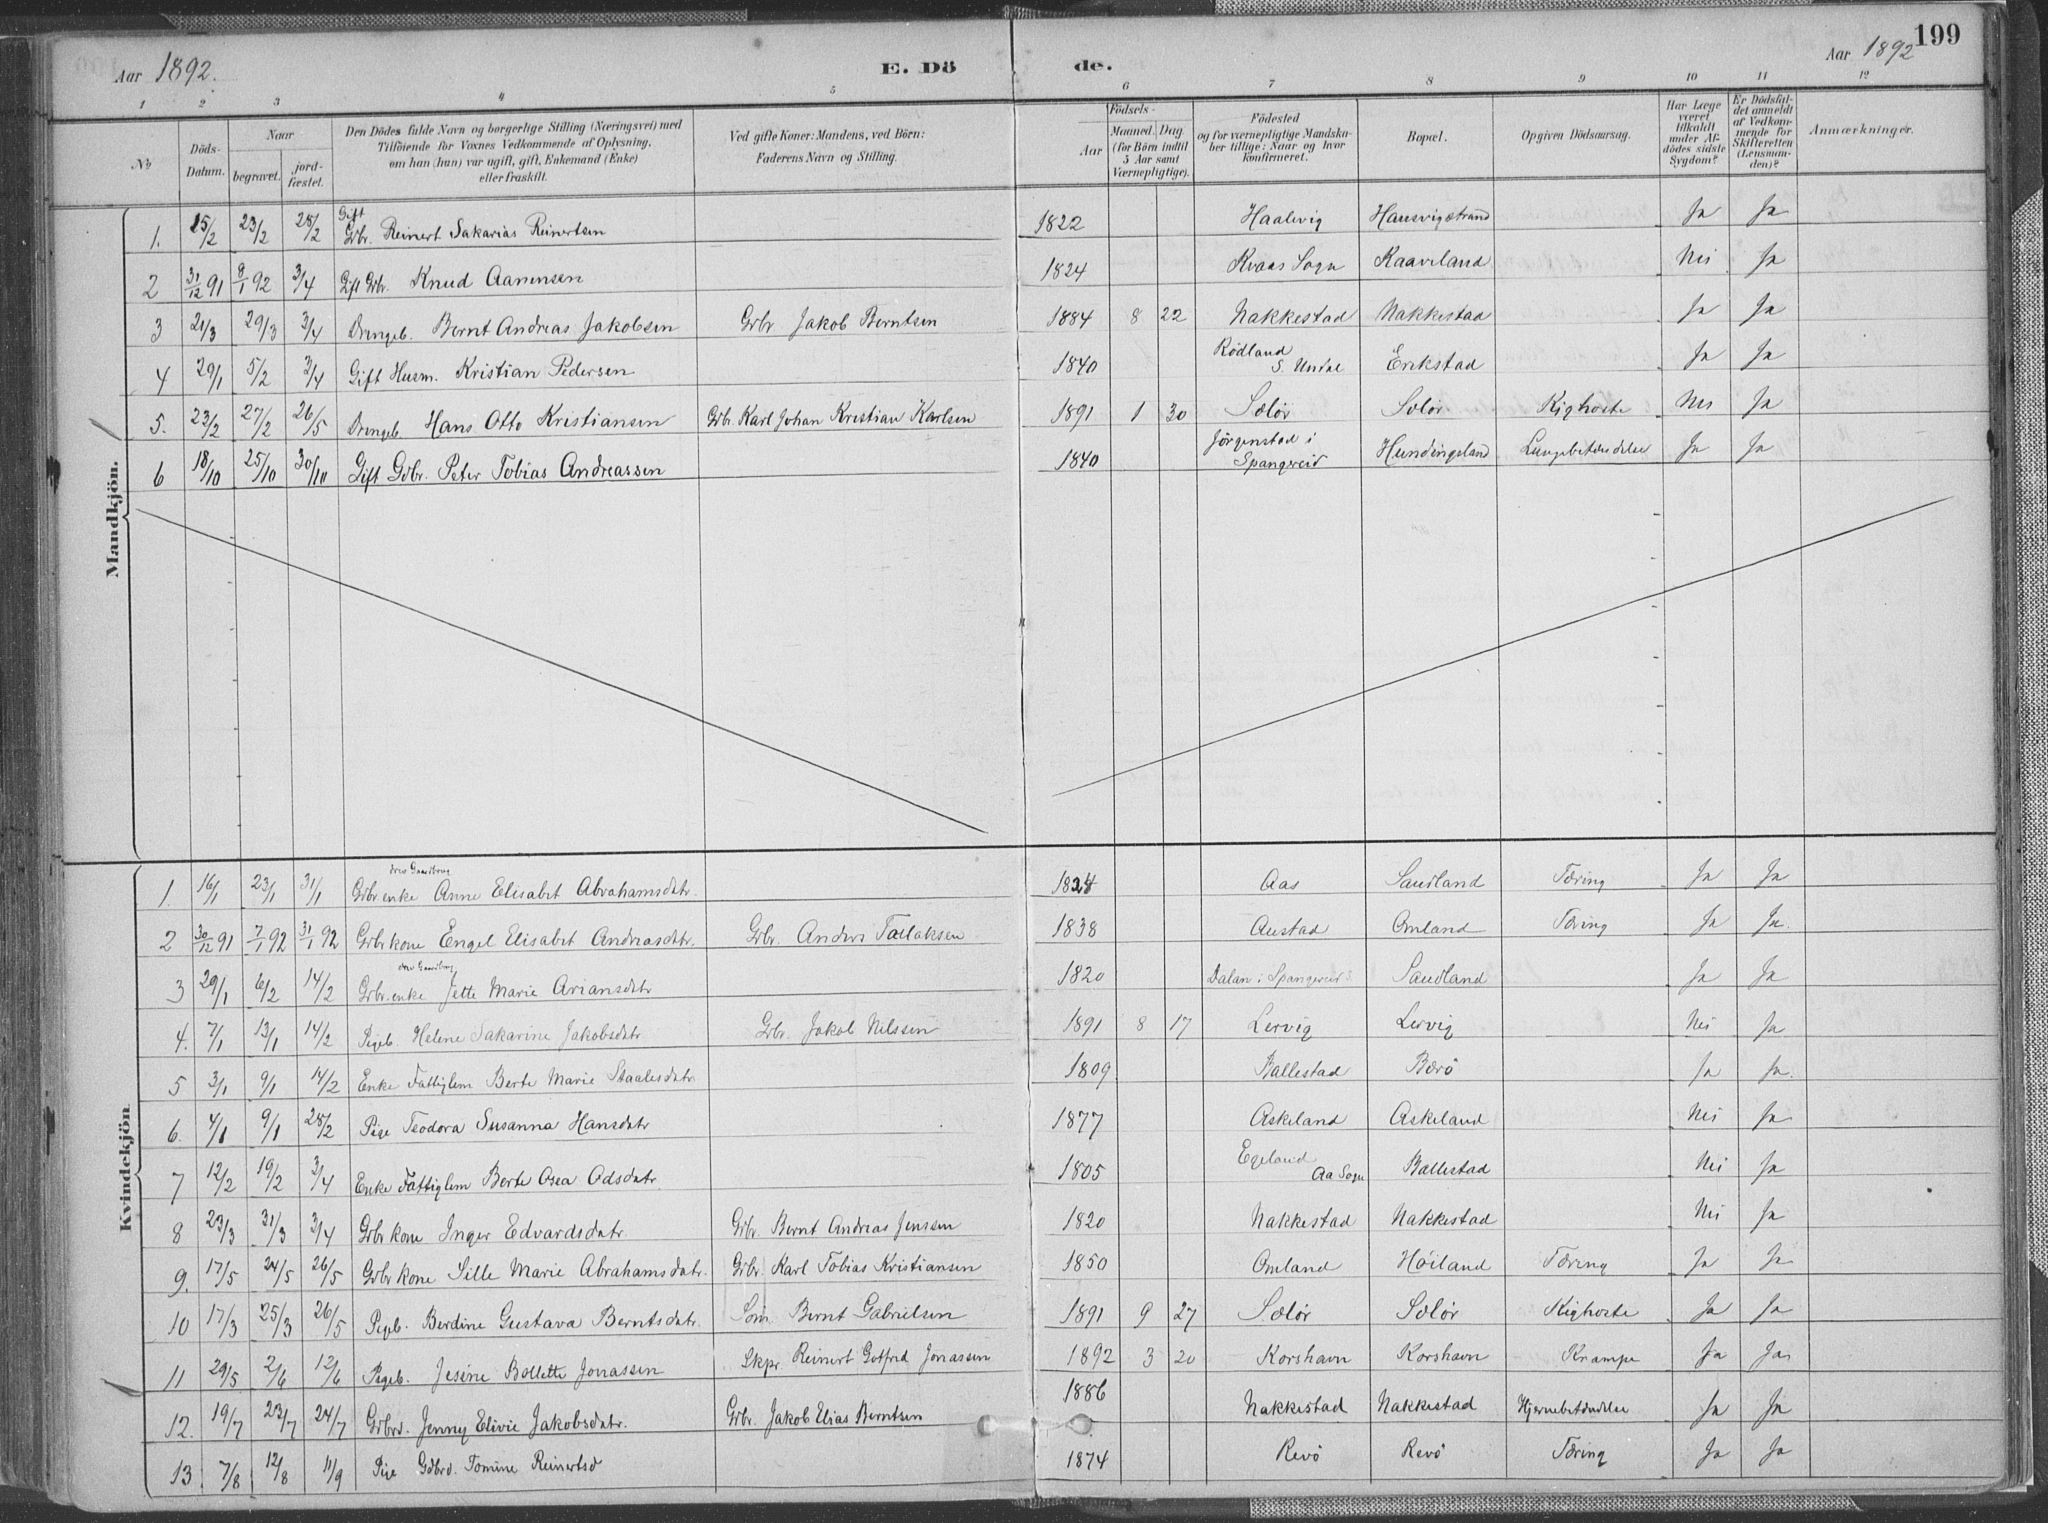 199
Aar 1892. E. Döde. Aar 1892
1 2 3 4 5 6 7 8 9 10 11 12
No
Döds-Datum.
Naar
begravet. jordfæstet.
Den Dödes fulde Navn og borgerlige Stilling (Næringsvei) med
Tilföiende for Voxnes Vedkommende af Oplysning,
om han (hun) var ugift, gift, Enkemand (Enke)
eller fraskilt.
Ved gifte Koner: Mandens, ved Börn:
Faderens Navn og Stilling.
Födsels-
Aar Maaned. Dag
(for Börn indtil
5 Aar samt
Værnepligtige).
Födested
og for værnepligtige Mandskaber tillige: Naar og hvor
konfirmeret.
Bopæl.
Opgiven Dödsaarsag.
Har Læge været tilkaldt under Afdödes sidste Sygdom?
Er Dödsfaldet anmeldt af Vedkommende for Skifteretten (Lensmanden)?
Anmærkninger.
Mandkjön.
1. 15/2 23/2 28/2 Gift Grbr. Reinert Sakarias Reinertsen 1822 Haalevig Hausvigstrand Ja Ja
2 31/12 91 8/1 92 3/4 Gift Grbr. Knud Aanensen 1824 Kvaas Sogn Kaaveland Nei Ja
3 21/3 29/3 3/4 Drengeb. Bernt Andreas Jakobsen Grbr Jakob Berntsen 1884 8 22 Nakkestad Nakkestad Ja Ja
4 29/1 5/2 3/4 Gift Husm. Kristian Pedersen 1840 Rödland S. Undal Erikstad Ja Ja
5. 23/2 27/2 26/5 Drengeb. Hans Otto Kristiansen Grbr. Karl Johan Kristian Karlsen 1891 1 30 Sælör Sælör Kighoste Nei Ja
6 18/10 25/10 30/10 Gift Grbr. Peter Tobias Andreassen 1840 Jörgenstad i Spangereid Hundingsland Lungebetændelse Ja Ja
Kvindekjön
1. 16/1 23/1 31/1 Grbrenke Anne Elisabet Abrahamsdatr. 1824 Aas Saudland Tæring Ja Ja
2 30/12 91 7/1 92 31/1 92 Grbrkone Engel Elisabet Andreasdatr. Grbr. Anders Tarlaksen 1838 Austad Omland Tæring Ja Ja.
3 29/1 6/2 14/2 Grbr.enke Jette Marie Ariansdatr 1820 Dalan i Spangereid S Saudland Ja Ja
4. 7/1 13/1 14/2 Pigeb. Helene Sakarine Jakobsdatr Grbr. Jakob Nilssen 1891 8 17 Lervig Lervig Nei Ja
5 3/1 9/1 14/2 Enke Fattiglem Berte Marie Staalesdatr 1809 Ballestad Bærö Ja Ja.
6. 4/1 9/1 28/2 Pige Teodora Susanna Hansdatr 1877 Askeland Askeland Nei Ja
7 12/2 19/2 3/4 Enke Fattiglem Berte Asea Adsdatr. 1805 Egeland Aa Sogn Ballestad Nei Ja
8 23/3 31/3 3/4 Grbrkone Inger Edvardsdatr. Grbr. Bernt Andreas Jenssen 1820 Nakkestad Nakkestad Nei Ja
9. 17/5 24/5 26/5 Grbrkone Sille Marie Abrahamsdatr. Grbr. Karl Tobias Kristiansen 1850 Omland Höiland Tæring Ja Ja
10 17/3 25/3 26/5 Pigeb. Berdine Gustava Berntsdatr. Söm. Bernt Gabrielsen 1891 9 27 Sælör Sælör Kighoste Ja Ja
11 29/5 2/6 12/6 Pigeb. Jesine Bollette Jonassen Skpr. Reinert Gotfred Jonassen 1892 3 20 Korshavn Korshavn Krampe Ja Ja
12. 19/7 23/7 24/7 Grbrd. Jenny Elivie Jakobsdatr. Grbr. Jakob Elias Berntsen 1886 Nakkestad Nakkestad Hjernebetændelse Ja Ja
13 7/8 12/8 11/9 Pige Gdbrd. Tomine Reinertsd 1874 Revö Revö Tæring Ja Ja